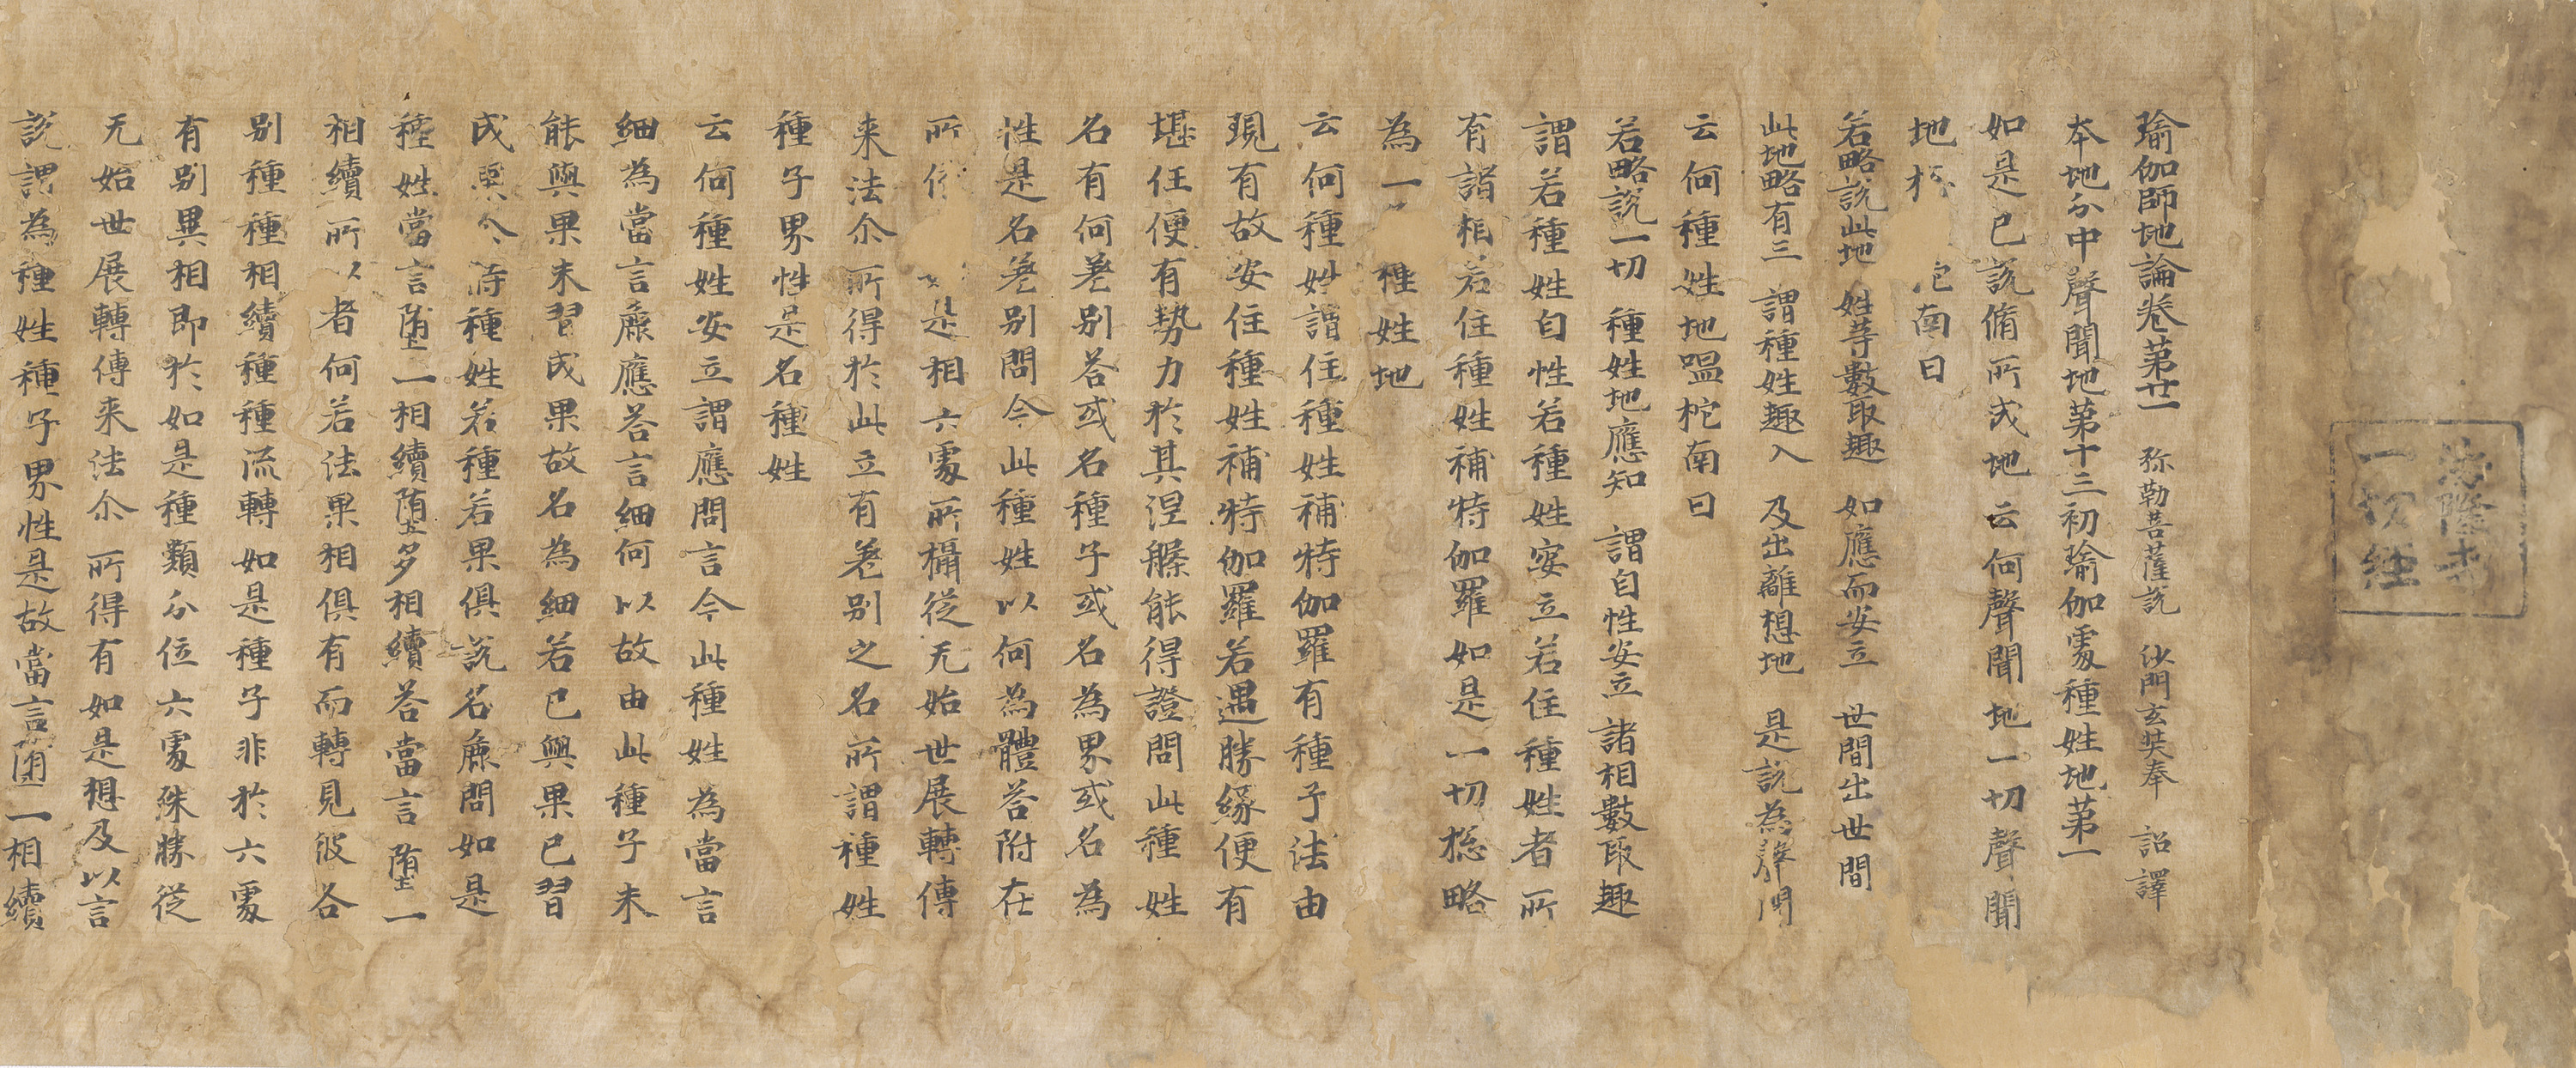 法隆寺
一切経
瑜伽師地論卷苐廿一 弥勒菩薩說 沙門玄奘奉 詔譯
本地分中聲聞地苐十三初瑜伽處種姓地苐一
如是已說脩所成地云何聲聞地一切聲聞
地 南曰
若略說此地 姓等數取趣 如應而安立 世間出世間
此地略有三 謂種姓趣入 及出離想地 是說為聲聞
云何種姓地嗢柁南曰
若略說一切 種姓地應知 謂自性安立 諸相數取趣
謂若種姓自性若種姓安立若住種姓者所
有諸相若住種姓補特伽羅如是一切捴略
為一 種姓地
云何種姓謂住種姓補特伽羅有種子法由
現有故安住種姓補特伽羅若遇勝緣便有
堪任便有勢力於其涅槃能得證問此種姓
名有何差别荅或名種子或名為界或名為
性是名差别問今此種姓以何為體荅附在
所 是相六處所攝從无始世展轉傳
来法尒所得於此立有差别之名所謂種姓
種子界性是名種姓
云何種姓安立謂應問言今此種姓為當言
細為當言麁應荅言細何以故由此種子未
能與果未習成果故名為細若已與果已習
成果今 種姓若種若果俱說名麁問如是
種姓當言墮一相續墮多相續荅當言墮一
相續所以者何若法異相俱有而轉見彼各
别種種相續種種流轉如是種子非於六處
有别異相即於如是種類分位六處殊勝從
无始世展轉傳来法尒所得有如是想及以言
說謂為種姓種子界性是故當言墮一相續